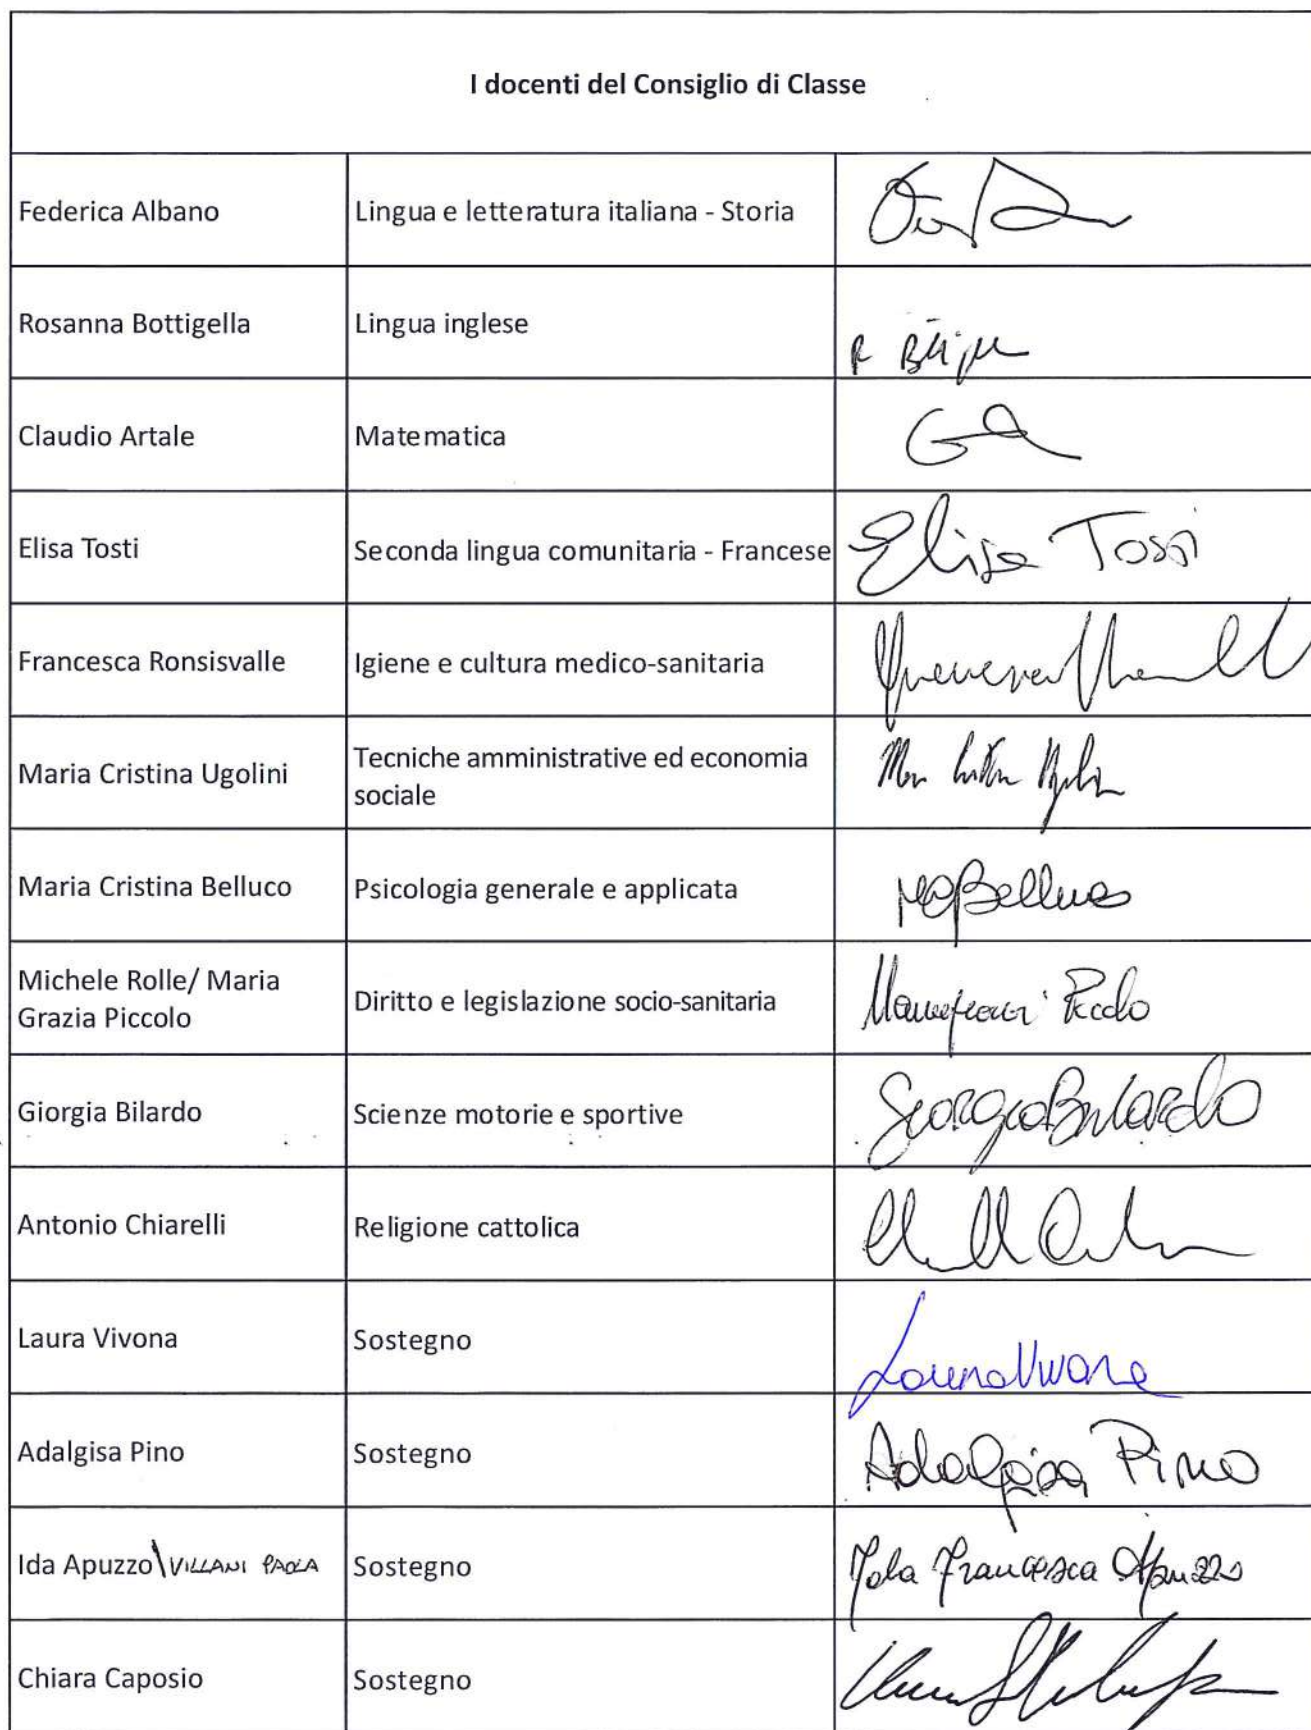 I docenti del Consiglio di Classe
Federica Albano Lingua e letteratura italiana - Storia
Rosanna Bottigella Lingua inglese
Claudio Artale Matematica
Elisa Tosti Seconda lingua comunitaria - Francese Elisa
Francesca Ronsisvalle Igiene e cultura medico-sanitaria
Maria Cristina Ugolini Tecniche amministrative ed economia
sociale
Maria Cristina Belluco Psicologia generale e applicata MCBelluco
Michele Rolle/ Maria
Grazia Piccolo Diritto e legislazione socio-sanitaria Piccolo
Giorgia Bilardo Scienze motorie e sportive Giorgia Bilardo
Antonio Chiarelli Religione cattolica
Laura Vivona Sostegno Laura Vivona
Adalgisa Pino Sostegno Adalgisa Pino
Ida Apuzzo\VILLANI PAOLA Sostegno Francesca Apuzzo
Chiara Caposio Sostegno